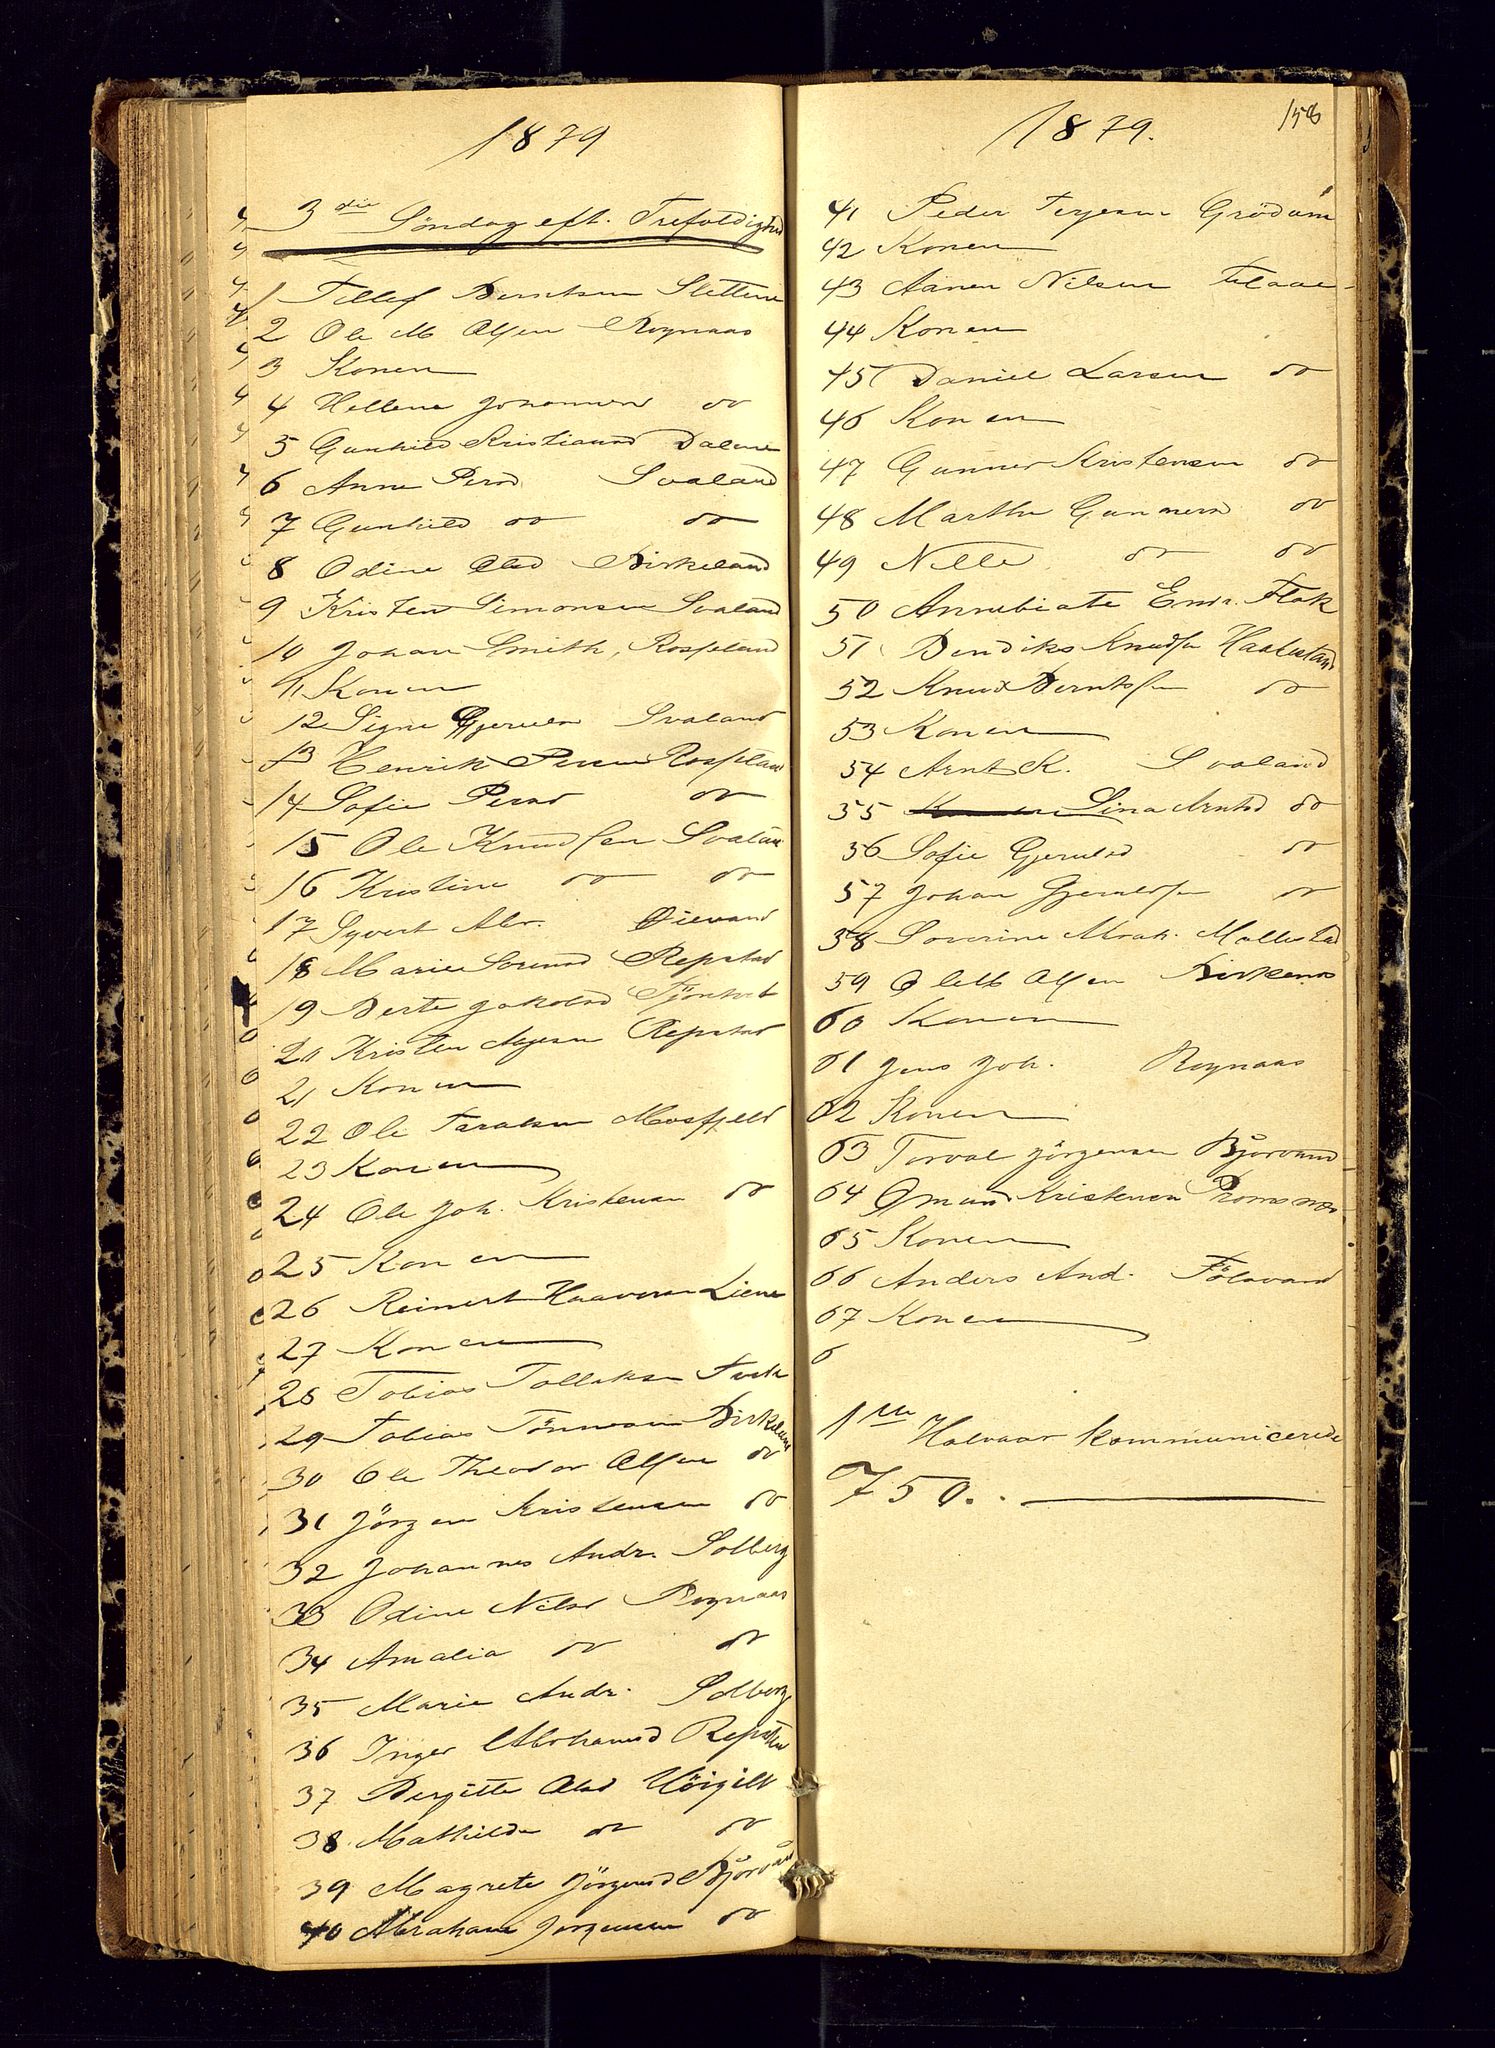 1879
3die Söndag eft. Trefoldighed
1 Tellef Berntsen Slettene
2 Ole M Olsen Rognaas
3 Konen
4 Hellene Johannesd do
5 Gunhild Kristiansd Dalene
6 Anne Persd Svaland
7 Gunhild do do
8 Odine Olsd Birkeland
9 Kristen Simonsen Svaland
10 Johan Smith, Rosseland
11 Konen
12 Signe Gjeruldsd Svaland
13 Henrik Persen Rosseland
14 Sofie Persd do
15 Ole Knudsen Svaland
16 Kristine do do
17 Syvert Abr. Oievand
18 Marie Sorensd Repstad
19 Berte Jakobsd
20 Kristen Aagesen Repstad
21 Konen
22 Ole Taraldsen Mosfjeld
23 Konen
24 Ole Joh. Kristensen do
25 Konen
26 Reinert Haavorsen Liene
27 Konen
28 Tobias Tallaksen
29 Tobias Tönnesen Birkeland
30 Ole Theodor Olsen do
31 Jörgen Kristensen do
32 Johannes Andr. Solberg
33 Odine Nilsd Rognaas
34 Amalia do do
35 Marie Andr. Solberg
36 Inger Abrahamsd Repstad
37 Bergitte Olsd Höigilt
38 Mathilde do do
39 Magrete Jörgensd Bjorvand
40 Abraham Jorgensen do
158
1879.
41 Peder Terjesen Grödum
42 Konen
43 Aanen Nilsen Flaae
44 Konen
45 Daniel Larsen do
46 Konen
47 Gunner Kristensen do
48 Marthe Gunnersd do
49 Nelle do do
50 Annebiate Endr. Flak
51 Bendiks Knudsen Haabestad
52 Knud Berntsen do
53 Konen
54 Arnt K. Svaland
55 Konen Sina Arntsd do
56 Sofie Gjeruldsd do
57 Johan Gjeruldsen do
58 Soverine Abrah. Mollestad
59 Ole M Olsen Birkenes
60 Konen
61 Jens Joh. Rognaas
62 Konen
63 Torval Jörgensen Bjorvand
64 Omund Kristensen
65 Konen
66 Anders And. Fölevand
67 Konen
6
1ste Halvaar kommunicerede
750. .